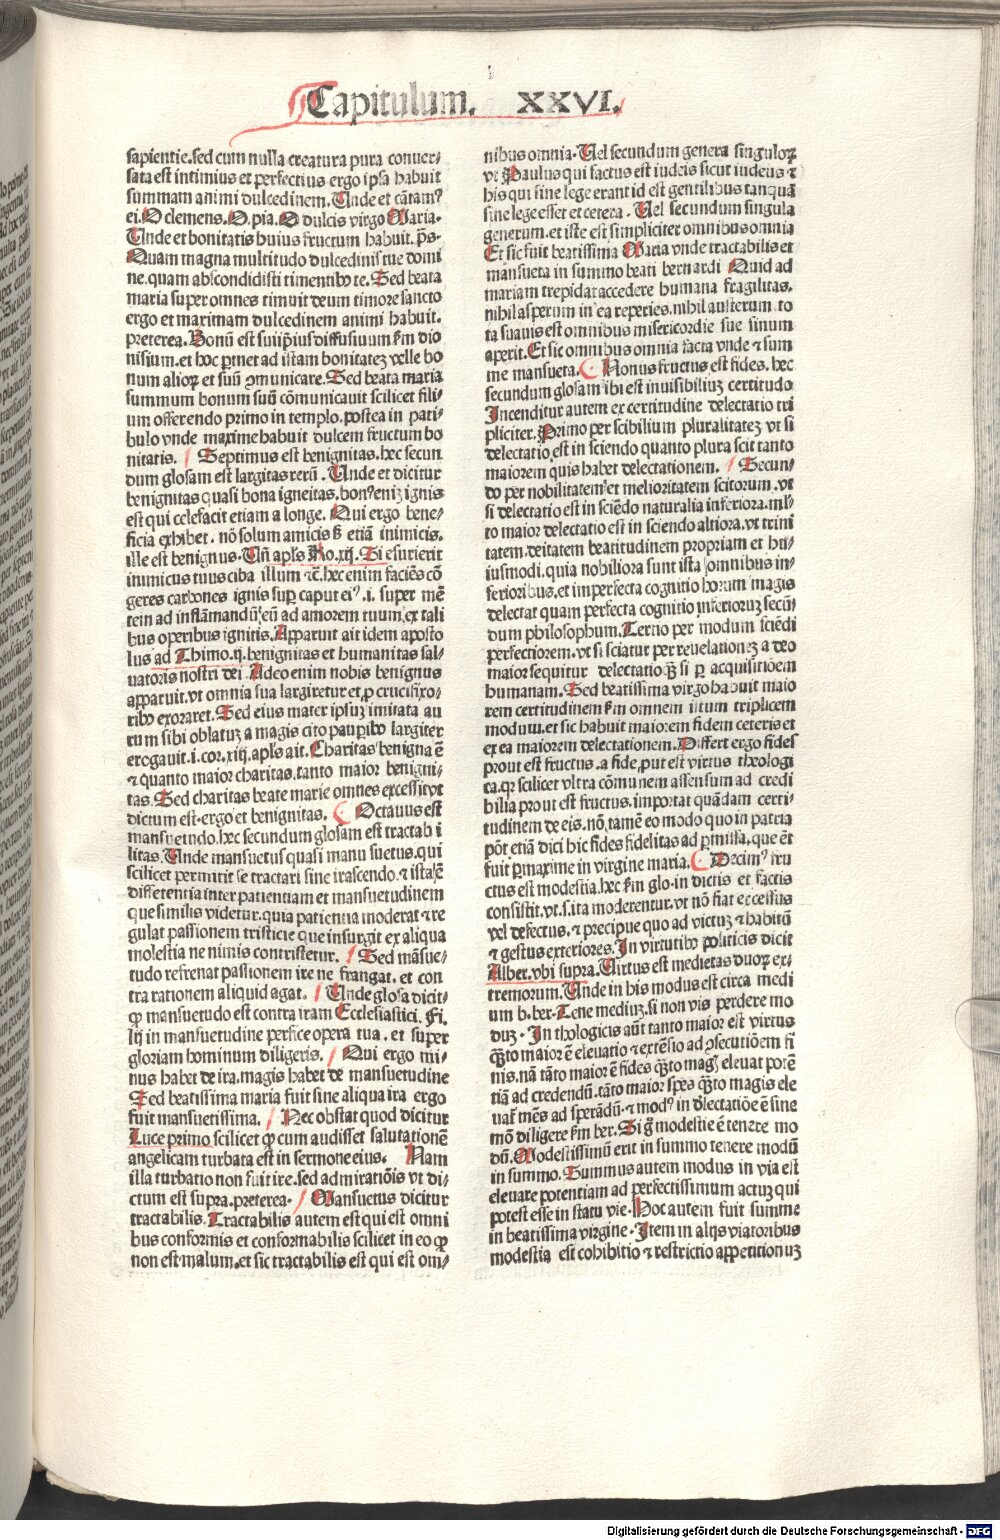 Capitulum. XXVI.
sapientie. sed cum nulla creatura pura conuer⸗
sata est intimius et perfectius ergo ipsa habuit
summam animi dulcedinem. Unde et cātamꝰ
ei. O clemens. O pia. O dulcis virgo Maria.
Unde et bonitatis huius fructum habuit. p̄s.
Quam magna multitudo dulcedinis tue domi
ne. quam abscondidisti timentibꝰ te. Sed beata
maria super omnes timuit deum timore sancto
ergo et maximam dulcedinem animi habuit.
preterea. Bonū est suiip̄ius diffusiuum ẜm dio
nisium. et hoc ꝑtinet ad istam bonitateꝫ velle bo
num alioꝝ et suū ꝯmunicare. Sed beata maria
summum bonum suū cōmunicauit scilicet fili⸗
um offerendo primo in templo. postea in pati⸗
bulo vnde maxime habuit dulcem fructum bo
nitatis. Septimus est benignitas. hec secun
dum glosam est largitas rerū. Unde et dicitur
benignitas quasi bona igneitas. bonꝰ eniꝫ ignis
est qui celefacit etiam a longe. Qui ergo bene⸗
ficia exhibet. nō solum amicis ẜ etiā inimicis.
ille est benignus. Un̄ apl̄s Ro. xij. Si esurierit
inimicus tuus ciba illum ⁊c̄. hec enim faciēs cō
geres carbones ignis suꝑ caput eiꝰ. i. super mē
tem ad inflāmandū eū ad amorem tuum. ex tali
bus operibus ignitis. Apparuit ait idem aposto
lus ad Thimo. ij. benignitas et humanitas sal⸗
uatoris nostri dei Adeo enim nobis benignus
apparuit. vt omnia sua largiretur et ꝓ crucifixo⸗
ribꝰ exoraret. Sed eius mater ipsuꝫ imitata au
rum sibi oblatuꝫ a magis cito pauꝑibꝰ largiter
erogauit. i. cor. xiij. apl̄s ait. Charitas benigna ē
⁊ quanto maior charitas. tanto maior benigni⸗
tas. Sed charitas beate marie omnes excessit vt
dictum est. ergo et benignitas. Octauus est
mansuetudo. hec secundum glosam est tractabi
litas. Unde mansuetus quasi manu suetus. qui
scilicet permittit se tractari sine irascendo. ⁊ ista ē
differentia inter patientiam et mansuetudinem
que similis videtur. quia patientia moderat ⁊ re
gulat passionem tristicie que insurgit ex aliqua
molestia ne nimis contristetur. Sed māsue⸗
tudo refrenat passionem ire ne frangat. et con
tra rationem aliquid agat. Unde glosa dicit⸗
ꝙ mansuetudo est contra iram Ecclesiastici. Fi⸗
lij in mansuetudine perfice opera tua. et super
gloriam hominum diligeris. Qui ergo mi⸗
nus habet de ira. magis habet de mansuetudine
Sed beatissima maria fuit sine aliqua ira ergo
fuit mansuetissima. Nec obstat quod dicitur
Luce primo scilicet ꝙ cum audisset salutationē
angelicam turbata est in sermone eius. Nam
illa turbatio non fuit ire. sed admiratiōis vt di⸗
ctum est supra. preterea. Mansuetus dicitur
tractabilis. Tractabilis autem est qui est omni
bus conformis et conformabilis scilicet in eo ꝙ
non est malum. et sic tractabilis est qui est om⸗
nibus omnia. Uel secundum genera singuloꝝ
vt Paulus qui factus est iudeis sicut iudeus ⁊
his qui sine lege erant id est gentilibus tanquā
sine lege esset et cetera. Uel secundum singula
generum. et iste est simpliciter omnibus omnia
Et sic fuit beatissima Maria vnde tractabilis et
mansueta in summo beati bernardi Quid ad
mariam trepidat accedere humana fragilitas.
nihil asperum in ea reperies. nihil austerum. to
ta suauis est omnibus misericordie sue sinum
aperit. Et sic omnibus omnia facta vnde ⁊ sum
me mansueta. Nonus fructus est fides. hec
secundum glosam ibi est inuisibiliuꝫ certitudo
Incenditur autem ex certitudine delectatio tri
pliciter. Primo per scibilium pluralitateꝫ vt si
delectatio est in sciendo quanto plura scit tanto
maiorem quis habet delectationem. Secun⸗
do per nobilitatem et melioritatem scitorum. vt
si delectatio est in sciēdo naturalia inferiora. ml⸗
to maior delectatio est in sciendo altiora. vt trini
tatem. deitatem beatitudinem propriam et hu⸗
iusmodi. quia nobiliora sunt ista omnibus in⸗
ferioribus. et imperfecta cognitio horum magis
delectat quam perfecta cognitio inferioruꝫ secū⸗
dum philosophum. Tertio per modum sciēdi
perfectiorem. vt si sciatur per reuelationeꝫ a deo
maior sequitur delectatio ꝙ̄ si ꝑ acquisitiōem
humanam. Sed beatissima virgo habuit maio
rem certitudinem ẜm omnem istum triplicem
modum. et sic habuit maiorem fidem ceteris et
ex ea maiorem delectationem. Differt ergo fides
prout est fructus. a fide. put est virtus theologi
ca. qꝛ scilicet vltra cōmunem assensum ad credi
bilia prout est fructus. importat quādam certi⸗
tudinem de eis. nō tamē eo modo quo in patria
pōt etiā dici hic fides fidelitas ad ꝓmissa. que ēt
fuit ꝑmaxime in virgine maria. Decimꝰ fru
ctus est modestia. hec ẜm glo. in dictis et factis
consistit. vt. s. ita moderentur. vt nō fiat eccessus
vel defectus. ⁊ precipue quo ad victuꝫ ⁊ habitū
⁊ gestus exteriores. In virtutibꝰ politicis dicit
Alber. vbi supra. Uirtus est medietas duoꝝ ex⸗
tremorum. Unde in his modus est circa medi
um b. ber. Tene mediuꝫ. si non vis perdere mo
duꝫ. In thologicis aūt tanto maior est virtus
ꝙ̄to maior ē eleuatio ⁊ extēsio ad ꝯsecutiōem fi
nis. nā tāto maior ē fides ꝙ̄to magꝭ eleuat potē
tiā ad credendū. tāto maior spes ꝙ̄to magis ele
uat mēs ad sperādū. ⁊ modꝰ in dilectatiōe ē sine
mō diligere ẜm ber. Si g̊ modestie ē tenere mo
dū. Modestissimū erit in summo tenere modū
in summo. Summus autem modus in via est
eleuare potentiam ad perfectissimum actuꝫ qui
potest esse in statu vie. Hoc autem fuit summe
in beatissima virgine. Item in alijs viatoribus
modestia est cohibitio ⁊ restrictio appetitionuꝫ
Digitalisierung gefördert durch die Deutsche Forschungsgemeinschaft - DFG